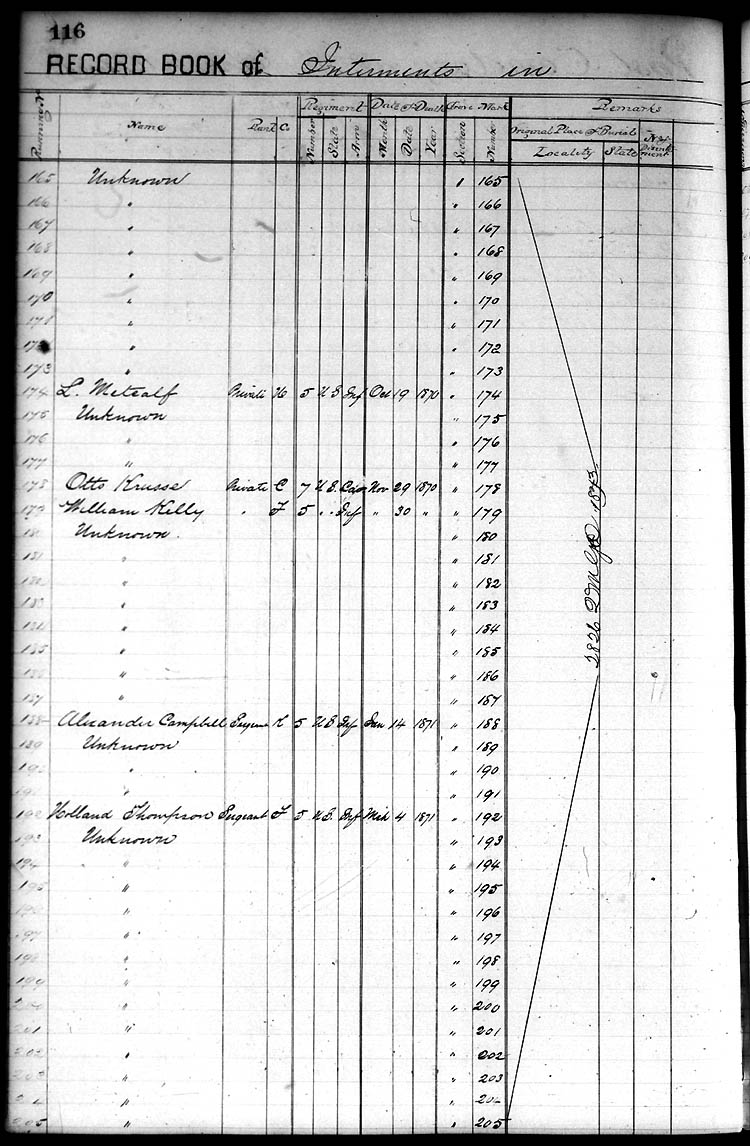 116
RECORD BOOK of Interments in
Name Rank Co. Regiment Date of Death Grave Mark Remarks
Number State Arm Month Date Year Section Number Original Place of Burial
Locality State
165 Unknown 165
166 " " 166
167 " " 167
168 " " 168
169 " " 169
170 " " 170
171 " " 171
172 " " 172
173 " " 173
174 L. Metcalf Private H 5 U S Inf Oct 19 1870 " 174
175 Unknown " 175
176 " " 176
177 " " 177
178 Otto Krusse Private C 7 U.S. Cav Nov 29 1870 " 178
179 William Kelly " F 5 " " Inf " 30 " " 179
180 Unknown. " 180
181 " " 181
182 " " 182
183 " " 183
184 " " 184
185 " " 185
186 " " 186
187 " " 187
188 Alexander Campbell K 5 U S Inf Jan 14 1871 " 188
189 Unknown " 189
190 " " 190
191 " " 191
192 Holland Thompson Sergeant F 5 U.S. Inf Mch 4 1871 " 192
193 Unknown " 193
194 " " 194
195 " " 195
196 " " 196
197 " " 197
198 " " 198
199 " " 199
200 " " 200
201 " " 201
202 " " 202
203 " " 203
204 " " 204
205 " " 205
2826 1873